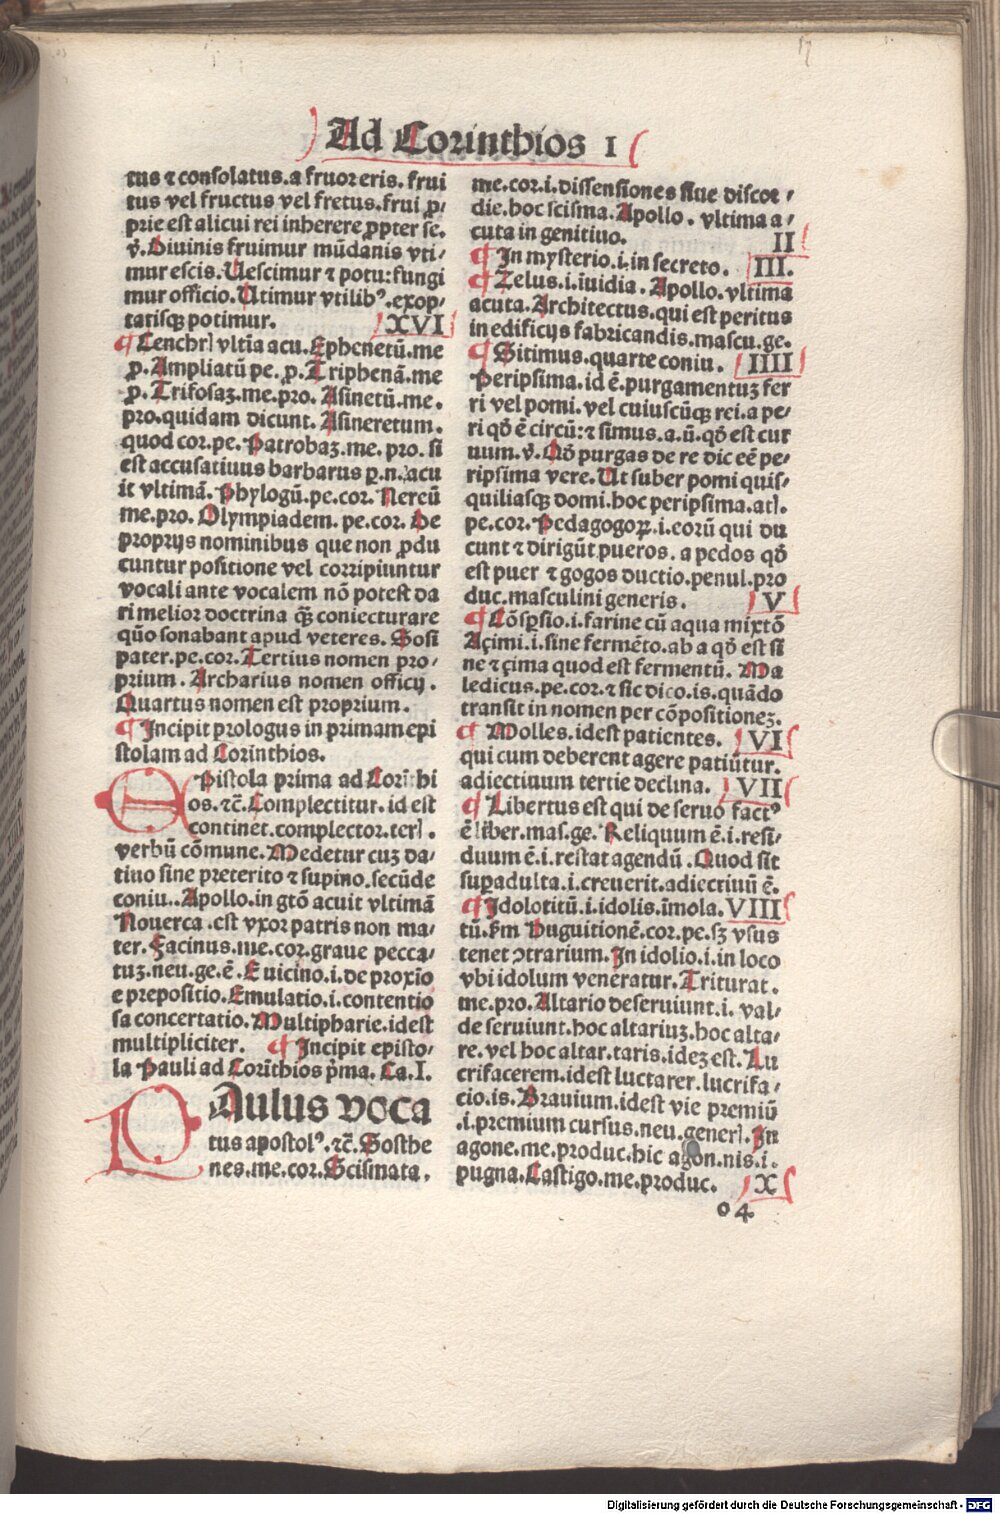 Ad Corinthios I
tus ⁊ consolatus. a fruor eris. frui
tus vel fructus vel fretus. frui ꝓ⸗
prie est alicui rei inherere ꝓpter se.
v̄. Diuinis fruimur mūdanis vti⸗
mur escis. Uescimur ⁊ potu: fungi
mur officio. Utimur vtilibꝰ. exop⸗
tatisqꝫ potimur. XVI
¶ Cenchrꝭ vltīa acu. Ephenetū. me
ꝓ. Ampliatū pe. ꝓ. Triphenā. me
ꝓ. Trifosaꝫ. me. pro. Asinetū. me.
pro. quidam dicunt. Asineretum.
quod cor. pe. Patrobaꝫ. me. pro. si
est accusatiuus barbarus ꝑ. n. acu
it vltimā. Phylogū. pe. cor. Nereū
me. pro. Olympiadem. pe. cor. De
proprijs nominibus que non ꝓdu
cuntur positione vel corripiuntur
vocali ante vocalem nō potest da
ri melior doctrina qꝫ̄ coniecturare
qūo sonabant apud veteres. Sosi
pater. pe. cor. Tertius nomen pro⸗
prium. Archarius nomen officij.
Quartus nomen est proprium.
¶ Incipit prologus in primam epi
stolam ad Corinthios.
EPistola prima ad Corīthi
os. ⁊c̄. Complectitur. id est
continet. complector. terꝭ.
verbū cōmune. Medetur cuꝫ da⸗
tiuo sine preterito ⁊ supino. secūde
coniu.. Apollo. in gtō acuit vltimā
Nouerca. est vxor patris non ma⸗
ter. Facinus. me. cor. graue pecca⸗
tuꝫ. neu. ge. ē. E uicino. i. de proxīo
e prepositio. Emulatio. i. contentio
sa concertatio. Multipharie. idest
multipliciter. ¶ Incipit episto⸗
la Pauli ad Corīthios p̄ma. Ca. I.
PAulus voca
tus apostolꝰ. ⁊c̄. Sosthe
nes. me. cor. Scismata.
me. cor. i. dissensiones siue discor⸗
die. hoc scisma. Apollo. vltima a⸗
cuta in genitiuo. II
¶ In mysterio. i. in secreto. III.
¶ Zelus. i. īuidia. Apollo. vltima
acuta. Architectus. qui est peritus
in edificijs fabricandis. mascu. ge.
¶ Sitimus. quarte coniu. IIII
Peripsima. id ē. purgamentuꝫ fer
ri vel pomi. vel cuiuscūqꝫ rei. a pe⸗
ri qđ ē circū: ⁊ simus. a. ū. qđ est cur
uum. v̄. Qđ purgas de re dic eē pe⸗
ripsima vere. Ut suber pomi quis⸗
quiliasqꝫ domi. hoc peripsima. atꝭ.
pe. cor. Pedagogoꝝ. i. corū qui du
cunt ⁊ dirigūt pueros. a pedos qđ
est puer ⁊ gogos ductio. penul. pro
duc. masculini generis. V
¶ Cōspsio. i. farine cū aqua mixtō
Açimi. i. sine fermēto. ab a qđ est si
ne ⁊ çima quod est fermentū. Ma
ledicus. pe. cor. ⁊ sic dico. is. quādo
transit in nomen per cōpositioneꝫ.
¶ Molles. idest patientes. VI
qui cum deberent agere patiūtur.
adiectiuum tertie declina. VII
¶ Libertus est qui de seruo factꝰ
ē liber. mas. ge. Reliquum ē. i. resi⸗
duum ē. i. restat agendū. Quod sit
suꝑadulta. i. creuerit. adiectiuū ē.
¶ Idolotitū. i. idolis. īmola. VIII
tū. ẜm Huguitionē. cor. pe. sꝫ vsus
tenet ꝯtrarium. In idolio. i. in loco
vbi idolum veneratur. Triturat.
me. pro. Altario deseruiunt. i. val⸗
de seruiunt. hoc altariuꝫ. hoc alta⸗
re. vel hoc altar. taris. ideꝫ est. Lu
crifacerem. idest luctarer. lucrifa⸗
cio. is. Brauium. idest vie premiū
.i. premium cursus. neu. generꝭ. In
agone. me. produc. hic agon. nis. i.
pugna. Castigo. me. produc. X
o 4
Digitalisierung gefördert durch die Deutsche Forschungsgemeinschaft - DFG